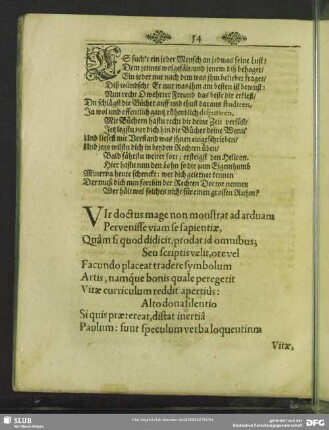 54
ES such't ein jeder Mensch an jedwas seine Lust/
Dem jennes wolgefält und jenem diß behaget/
Ein jeder nur nach dem was ihm beliebet fraget/
Diß wündscht Er nur was ihm am besten ist bewust:
Nun recht O wehrter Freund das beste dir erkiest/
Du schlägst die Bücher auff und thust daraus studiren,
Ja wol und offentlich gantz rühmblich disputiren,
Mit Büchern hastu recht dir deine Zeit versüst/
Jetz legstu vor dich hin die Bücher deine Wonn'
Und liesest mit Verstand was ihnen eingeschrieben/
Und jezo willstu dich in beyden Rechten üben/
Bald fährstu weiter fort; ersteigst den Helicon.
Hier hastu nun den Lohn so dir zum Eigenthumb
Minerva heute schenckt: wer dich gelernet kennen
Der muß dich nun forthin der Rechten Doctor nennen
Wer hält wol solches nicht für einen grossen Ruhm?
VIr doctus mage non monstrat ad arduam
Pervenisse viam se sapientiæ,
Quàm si quod didicit, prodat id omnibus;
Seu scriptis velit, ore vel
Facundo placeat tradere symbolum
Artis, namque bonis quale peregerit
Vitæ curriculum reddit apertiùs:
Alto dona silentio
Si quis prætereat, distat inertiâ
Paulum: sunt speculum verba loquentium
Vitæ,
SLUB
Wir führen Wissen.
gefördert von der
Deutschen Forschungsgemeinschaft
DFG